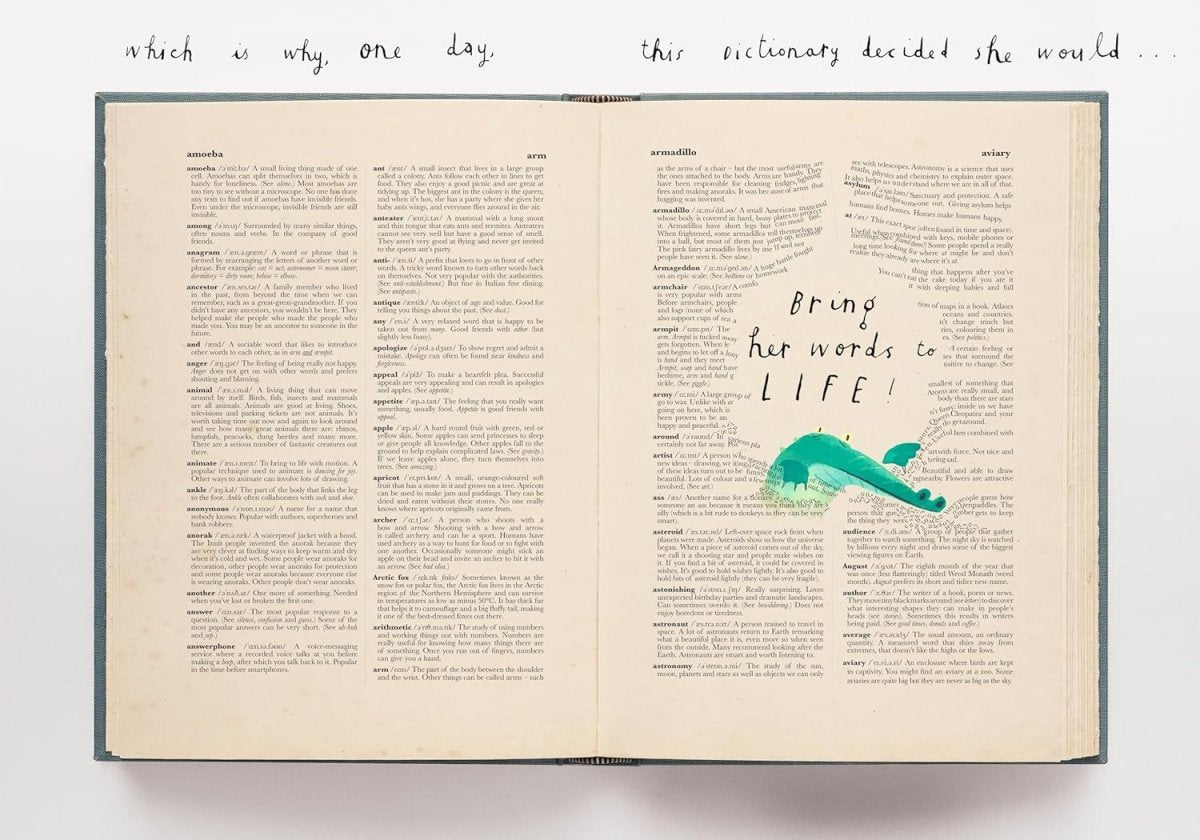 which is why, one day, this dictionary decided she would ...
amoeba
arm
amoeba /əˈmiː.bə/ A small living thing made of one
cell. Amoebas can split themselves in two, which is
handy for loneliness. (See alone.) Most amoebas are
too tiny to see without a microscope. No one has done
any tests to find out if amoebas have invisible friends.
Even under the microscope, invisible friends are still
invisible.
among /əˈmʌŋ/ Surrounded by many similar things,
often nouns and verbs. In the company of good
friends.
anagram /ˈæn.ə.ɡræm/ A word or phrase that is
formed by rearranging the letters of another word or
phrase. For example: cat = act; astronomer = moon starer;
dormitory = dirty room; below = elbow.
ancestor /ˈæn.ses.tər/ A family member who lived
in the past, from beyond the time when we can
remember, such as a great-great-grandmother. If you
didn't have any ancestors, you wouldn't be here. They
helped make the people who made the people who
made you. You may be an ancestor to someone in the
future.
and /ænd/ A sociable word that likes to introduce
other words to each other, as in arm and armpit.
anger /ˈæŋ.ɡər/ The feeling of being really not happy.
Anger does not get on with other words and prefers
shouting and blaming.
animal /ˈæn.ɪ.məl/ A living thing that can move
around by itself. Birds, fish, insects and mammals
are all animals. Animals are good at living. Shoes,
televisions and parking tickets are not animals. It's
worth taking time out now and again to look around
and see how many great animals there are: rhinos,
lumpfish, peacocks, dung beetles and many more.
There are a serious number of fantastic creatures out
there.
animate /ˈæn.ɪ.meɪt/ To bring to life with motion. A
popular technique used to animate is dancing for joy.
Other ways to animate can involve lots of drawing.
ankle /ˈæŋ.kəl/ The part of the body that links the leg
to the foot. Ankle often collaborates with sock and shoe.
anonymous /əˈnɒn.ɪ.məs/ A name for a name that
nobody knows. Popular with authors, superheroes and
bank robbers.
anorak /ˈæn.ə.ræk/ A waterproof jacket with a hood.
The Inuit people invented the anorak because they
are very clever at finding ways to keep warm and dry
when it's cold and wet. Some people wear anoraks for
decoration, other people wear anoraks for protection
and some people wear anoraks because everyone else
is wearing anoraks. Other people don't wear anoraks.
another /əˈnʌð.ər/ One more of something. Needed
when you've lost or broken the first one.
answer /ˈɑːn.sər/ The most popular response to a
question. (See silence, confusion and guess.) Some of the
most popular answers can be very short. (See uh-huh
and yep.)
answerphone /ˈɑːn.sə.fəʊn/ A voice-messaging
service where a recorded voice talks at you before
making a beep, after which you talk back to it. Popular
in the time before smartphones.
ant /ænt/ A small insect that lives in a large group
called a colony. Ants follow each other in lines to get
food. They also enjoy a good picnic and are great at
tidying up. The biggest ant in the colony is the queen,
and when it's hot, she has a party where she gives her
baby ants wings, and everyone flies around in the air.
anteater /ˈæntˌiː.tər/ A mammal with a long snout
and thin tongue that eats ants and termites. Anteaters
cannot see very well but have a good sense of smell.
They aren't very good at flying and never get invited
to the queen ant's party.
anti- /ˈæn.ti/ A prefix that loves to go in front of other
words. A tricky word known to turn other words back
on themselves. Not very popular with the authorities.
(See anti-establishment.) But fine in Italian fine dining.
(See antipasto.)
antique /ænˈtiːk/ An object of age and value. Good for
telling you things about the past. (See dust.)
any /ˈen.i/ A very relaxed word that is happy to be
taken out from many. Good friends with either (but
slightly less funny).
apologize /əˈpɒl.ə.dʒaɪz/ To show regret and admit a
mistake. Apology can often be found near kindness and
forgiveness.
appeal /əˈpiːl/ To make a heartfelt plea. Successful
appeals are very appealing and can result in apologies
and apples. (See appetite.)
appetite /ˈæp.ə.taɪt/ The feeling that you really want
something, usually food. Appetite is good friends with
appeal.
apple /ˈæp.əl/ A hard round fruit with green, red or
yellow skin. Some apples can send princesses to sleep
or give people all knowledge. Other apples fall to the
ground to help explain complicated laws. (See gravity.)
If we leave apples alone, they turn themselves into
trees. (See amazing.)
apricot /ˈeɪ.prɪ.kɒt/ A small, orange-coloured soft
fruit that has a stone in it and grows on a tree. Apricots
can be used to make jam and puddings. They can be
dried and eaten without their stones. No one really
knows where apricots originally came from.
archer /ˈɑː.tʃər/ A person who shoots with a
bow and arrow. Shooting with a bow and arrow
is called archery and can be a sport. Humans have
used archery as a way to hunt for food or to fight with
one another. Occasionally someone might stick an
apple on their head and invite an archer to hit it with
an arrow. (See bad idea.)
Arctic fox /ˈɑːk.tɪk fɒks/ Sometimes known as the
snow fox or polar fox, the Arctic fox lives in the Arctic
region of the Northern Hemisphere and can survive
in temperatures as low as minus 50°C. It has thick fur
that helps it to camouflage and a big fluffy tail, making
it one of the best-dressed foxes out there.
arithmetic /əˈrɪθ.mə.tɪk/ The study of using numbers
and working things out with numbers. Numbers are
really useful for knowing how many things there are
of something. Once you run out of fingers, numbers
can give you a hand.
arm /ɑːm/ The part of the body between the shoulder
and the wrist. Other things can be called arms – such
armadillo
aviary
as the arms of a chair – but the most useful arms are
the ones attached to the body. Arms are handy. They
have been responsible for cleaning fridges, lighting
fires and making anoraks. It was because of arms that
hugging was invented.
armadillo /ˌɑː.məˈdɪl.əʊ/ A small American mammal
whose body is covered in hard, bony plates to protect
it. Armadillos have short legs but can move fast.
When frightened, some armadillos roll themselves up
into a ball, but most of them just jump up, terrified.
The pink fairy armadillo lives by itself and not
people have seen it. (See alone.)
Armageddon /ˌɑː.məˈɡed.ən/ A huge battle fought
on an epic scale. (See bedtime or homework
armchair /ˈɑːm.tʃeər/ A comfo
is very popular with arms
Before armchairs, people
and logs (none of which
also support cups of tea a
armpit /ˈɑːm.pɪt/ The
arm. Armpit is tucked away
gets forgotten. When le
and begins to let off a
is hand and they meet
Armpit, soap and hand have
bedtime, arm and hand g
tickle. (See giggle.)
army /ˈɑː.mi/ A large group of
go to war. Unlike with
going on here, which is
been proven to be an
happy and peaceful.
around /əˈraʊnd/ In various pla
certainly not far away.
artist /ˈɑː.tɪst/ A person who spends
new ideas – drawing, writing
of these ideas turn out to be
beautiful. Lots of time with
involved. (See art.)
ass /æs/ Another name for a donkey
someone an ass because it means you think they are
silly (which is a bit rude to donkeys as they can be very
smart).
asteroid /ˈæs.tər.ɔɪd/ Left-over space rock from when
planets were made. Asteroids show us how the universe
began. When a piece of asteroid comes out of the sky,
we call it a shooting star and people make wishes on
it. If you find a bit of asteroid, it could be covered in
wishes. It's good to hold wishes lightly. It's also good to
hold bits of asteroid lightly (they can be very fragile).
astonishing /əˈstɒn.ɪ.ʃɪŋ/ Really surprising. Loves
unexpected birthday parties and dramatic landscapes.
Can sometimes overdo it. (See bewildering.) Does not
enjoy boredom or tiredness.
astronaut /ˈæs.trə.nɔːt/ A person trained to travel in
space. A lot of astronauts return to Earth remarking
what a beautiful place it is, even more so when seen
from the outside. Many recommend looking after the
Earth. Astronauts are smart and worth listening to.
astronomy /əˈstrɒn.ə.mi/ The study of the sun,
moon, planets and stars as well as objects we can only
see with telescopes. Astronomy is a science that uses
maths, physics and chemistry to explain outer space.
It also helps us understand where we are in all of that.
asylum /əˈsaɪ.ləm/ Sanctuary and protection. A safe
place that helps someone out. Giving asylum helps
humans find homes. Homes make humans happy.
at /æt/ This exact spot (often found in time and space).
Useful when combined with keys, mobile phones or
meetings. (See found them!) Some people spend a really
long time looking for where at might be and don't
realize they already are where it's at.
thing that happens after you've
You can't eat the cake today if you ate it
it with sleeping babies and full
tion of maps in a book. Atlases
oceans and countries.
n't change much but
ries, colouring them in
es. (See politics.)
A certain feeling or
ses that surround the
nsitive to change. (See
smallest of something that
Atoms are really small, and
body than there are stars
n's funny, inside us we have
Queen Cleopatra and your
do get around.
Useful when combined with
art with force. Not nice and
being sad.
Beautiful and able to draw
nearby. Flowers are attractive
involved.
people guess how
some
person that gue
the thing they were
gets to keep
Bring
her words to
LIFE!
audience /ˈɔː.di.əns/ A group of people that gather
together to watch something. The night sky is watched
by billions every night and draws some of the biggest
viewing figures on Earth.
August /ˈɔː.ɡəst/ The eighth month of the year that
was once (less flatteringly) titled Weod Monath (weed
month). August prefers its short and tidier new name.
author /ˈɔː.θər/ The writer of a book, poem or news.
They move tiny black marks around (see letters) to discover
what interesting shapes they can make in people's
heads (see stories). Sometimes this results in writers
being paid. (See good times, donuts and coffee.)
average /ˈæv.ər.ɪdʒ/ The usual amount, an ordinary
quantity. A measured word that shies away from
extremes, that doesn't like the highs or the lows.
aviary /ˈeɪ.vi.ə.ri/ An enclosure where birds are kept
in captivity. You might find an aviary at a zoo. Some
aviaries are quite big but they are never as big as the sky.